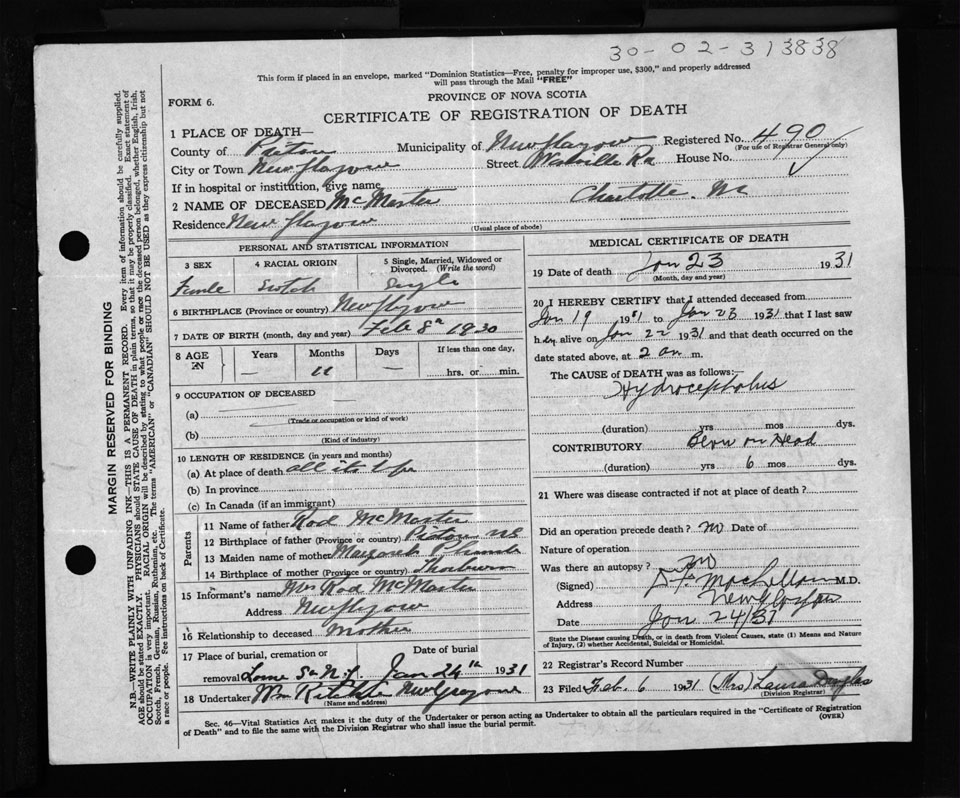 30-02-313838
This form if placed in an envelope, marked "Dominion Statistics—Free, penalty for improper use, $300," and properly addressed
will pass through the Mail "FREE"
FORM 6.
PROVINCE OF NOVA SCOTIA
CERTIFICATE OF REGISTRATION OF DEATH
1 PLACE OF DEATH—
County of Pictou Municipality of New Glasgow Registered No. 490
(For use of Registrar General only)
City or Town New Glasgow Street Westville Rd House No.
If in hospital or institution, give name
2 NAME OF DECEASED McMaster Charlotte M
Residence New Glasgow
(Usual place of abode)
PERSONAL AND STATISTICAL INFORMATION
3 SEX Female
4 RACIAL ORIGIN Scotch
5 Single, Married, Widowed or Divorced. (Write the word) Single
6 BIRTHPLACE (Province or country) New Glasgow
7 DATE OF BIRTH (month, day and year) Feb 8th 1830
8 AGE IN Years — Months 11 Days — If less than one day, hrs. or min.
9 OCCUPATION OF DECEASED
(a)
(Trade or occupation or kind of work)
(b)
(Kind of industry)
10 LENGTH OF RESIDENCE (in years and months)
(a) At place of death all its life
(b) In province
(c) In Canada (if an immigrant)
Parents
11 Name of father Rod McMaster
12 Birthplace of father (Province or country) Pictou NS
13 Maiden name of mother Margaret
14 Birthplace of mother (Province or country) Thorburn
15 Informant's name Mrs Rod McMaster
Address New Glasgow
16 Relationship to deceased Mother
17 Place of burial, cremation or removal Lorne St N.G. Date of burial Jan 24th 1931
18 Undertaker Wm Ritchie New Glasgow
(Name and address)
MEDICAL CERTIFICATE OF DEATH
19 Date of death Jan 23 1931
(Month, day and year)
20 I HEREBY CERTIFY that I attended deceased from
Jan 19 1931 to Jan 23 1931 that I last saw
her alive on Jan 22 1931 and that death occurred on
date stated above, at 2 a m.
The CAUSE of DEATH was as follows:—
Hydrocephalus
(duration) yrs mos dys.
CONTRIBUTORY Blow on Head
(duration) yrs 6 mos dys.
21 Where was disease contracted if not at place of death?
Did an operation precede death? no Date of
Nature of operation
Was there an autopsy? no
(Signed) MacLellan M.D.
Address New Glasgow
Date Jan 24/31
State the Disease causing Death, or in death from Violent Causes, state (1) Means and Nature
of Injury, (2) whether Accidental, Suicidal or Homicidal.
22 Registrar's Record Number
23 Filed Feb. 6 1931 (Mrs) Laura Douglas
Division Registrar
Sec. 46—Vital Statistics Act makes it the duty of the Undertaker or person acting as Undertaker to obtain all the particulars required in the "Certificate of Registration
of Death" and to file the same with the Division Registrar who shall issue the burial permit.
(OVER)
MARGIN RESERVED FOR BINDING
N.B.—WRITE PLAINLY WITH UNFADING INK—THIS IS A PERMANENT RECORD. Every item of information should be carefully supplied.
AGE should be stated EXACTLY. PHYSICIANS should STATE CAUSE OF DEATH in plain terms, so that it may be properly classified. Exact statement of
OCCUPATION is very important. RACIAL ORIGIN will be described by stating to what people or race the deceased person belonged, whether English, Irish,
Scotch, French, German, Russian, Ruthenian, etc. The terms "AMERICAN" or "CANADIAN" SHOULD NOT BE USED as they express citizenship but not
a race or people. See instructions on back of Certificate.